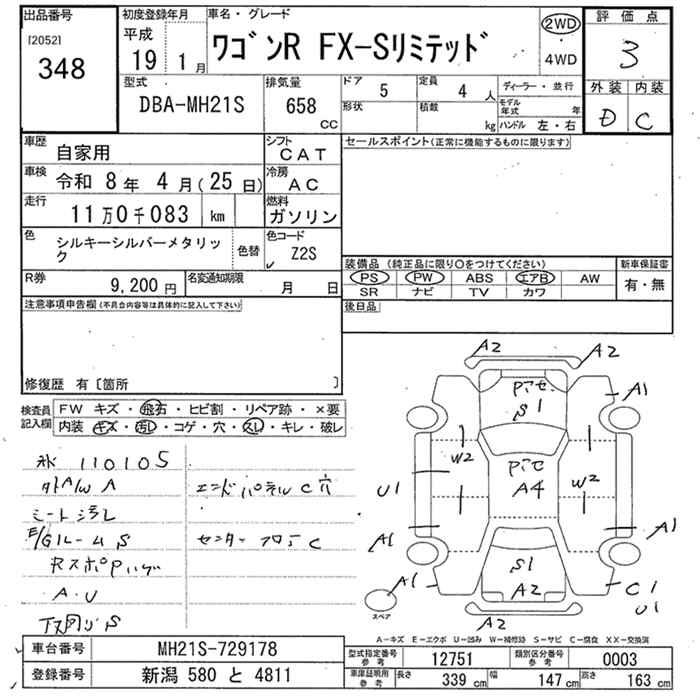 出品番号
[2052]
348
初度登録年月
平成
19 1月
車名・グレード
ワゴンR FX-Sリミテッド
2WD
・
4WD
評価点
3
外装 内装
D C
型式
DBA-MH21S
排気量
658
cc
ドア 5
形状
定員 4 人
積載 kg
ディーラー・並行
モデル年式 年
ハンドル 左・右
車歴
自家用
シフト
CAT
車検
令和 8年 4月(25日)
冷房
AC
走行
11万0千083 km
燃料
ガソリン
色
シルキーシルバーメタリック
色替
色コード
Z2S
R券
9,200円
名変通知期限
月 日
セールスポイント(正常に機能するものに限ります)
装備品(純正品に限り○をつけてください)
PS PW ABS エアB AW
SR ナビ TV カワ
新車保証書
有・無
後日品
注意事項申告欄(不具合内容等は具体的に記入して下さい)
修復歴 有〔箇所 〕
検査員記入欄
FW キズ・飛石・ヒビ割・リペア跡・×要
内装 キズ・汚れ・コゲ・穴・スレ・キレ・破レ
110105
外A/W A
シート汚レ
E/Gルーム S
A.U
下廻り S
エンドパネル C穴
センターフロア C
A2
A2
A1
S1
W2
A4
W2
U1
A1
A1
A1
S1
A2
C1
U1
A2
スペア
A-キズ E-エクボ U-凹み W-補修跡 S-サビ C-腐食 XX-交換済
車台番号
MH21S-729178
登録番号
新潟 580 と 4811
型式指定番号
参考
12751
類別区分番号
参考
0003
車庫証明用
参考
長さ 339 cm
幅 147 cm
高さ 163 cm